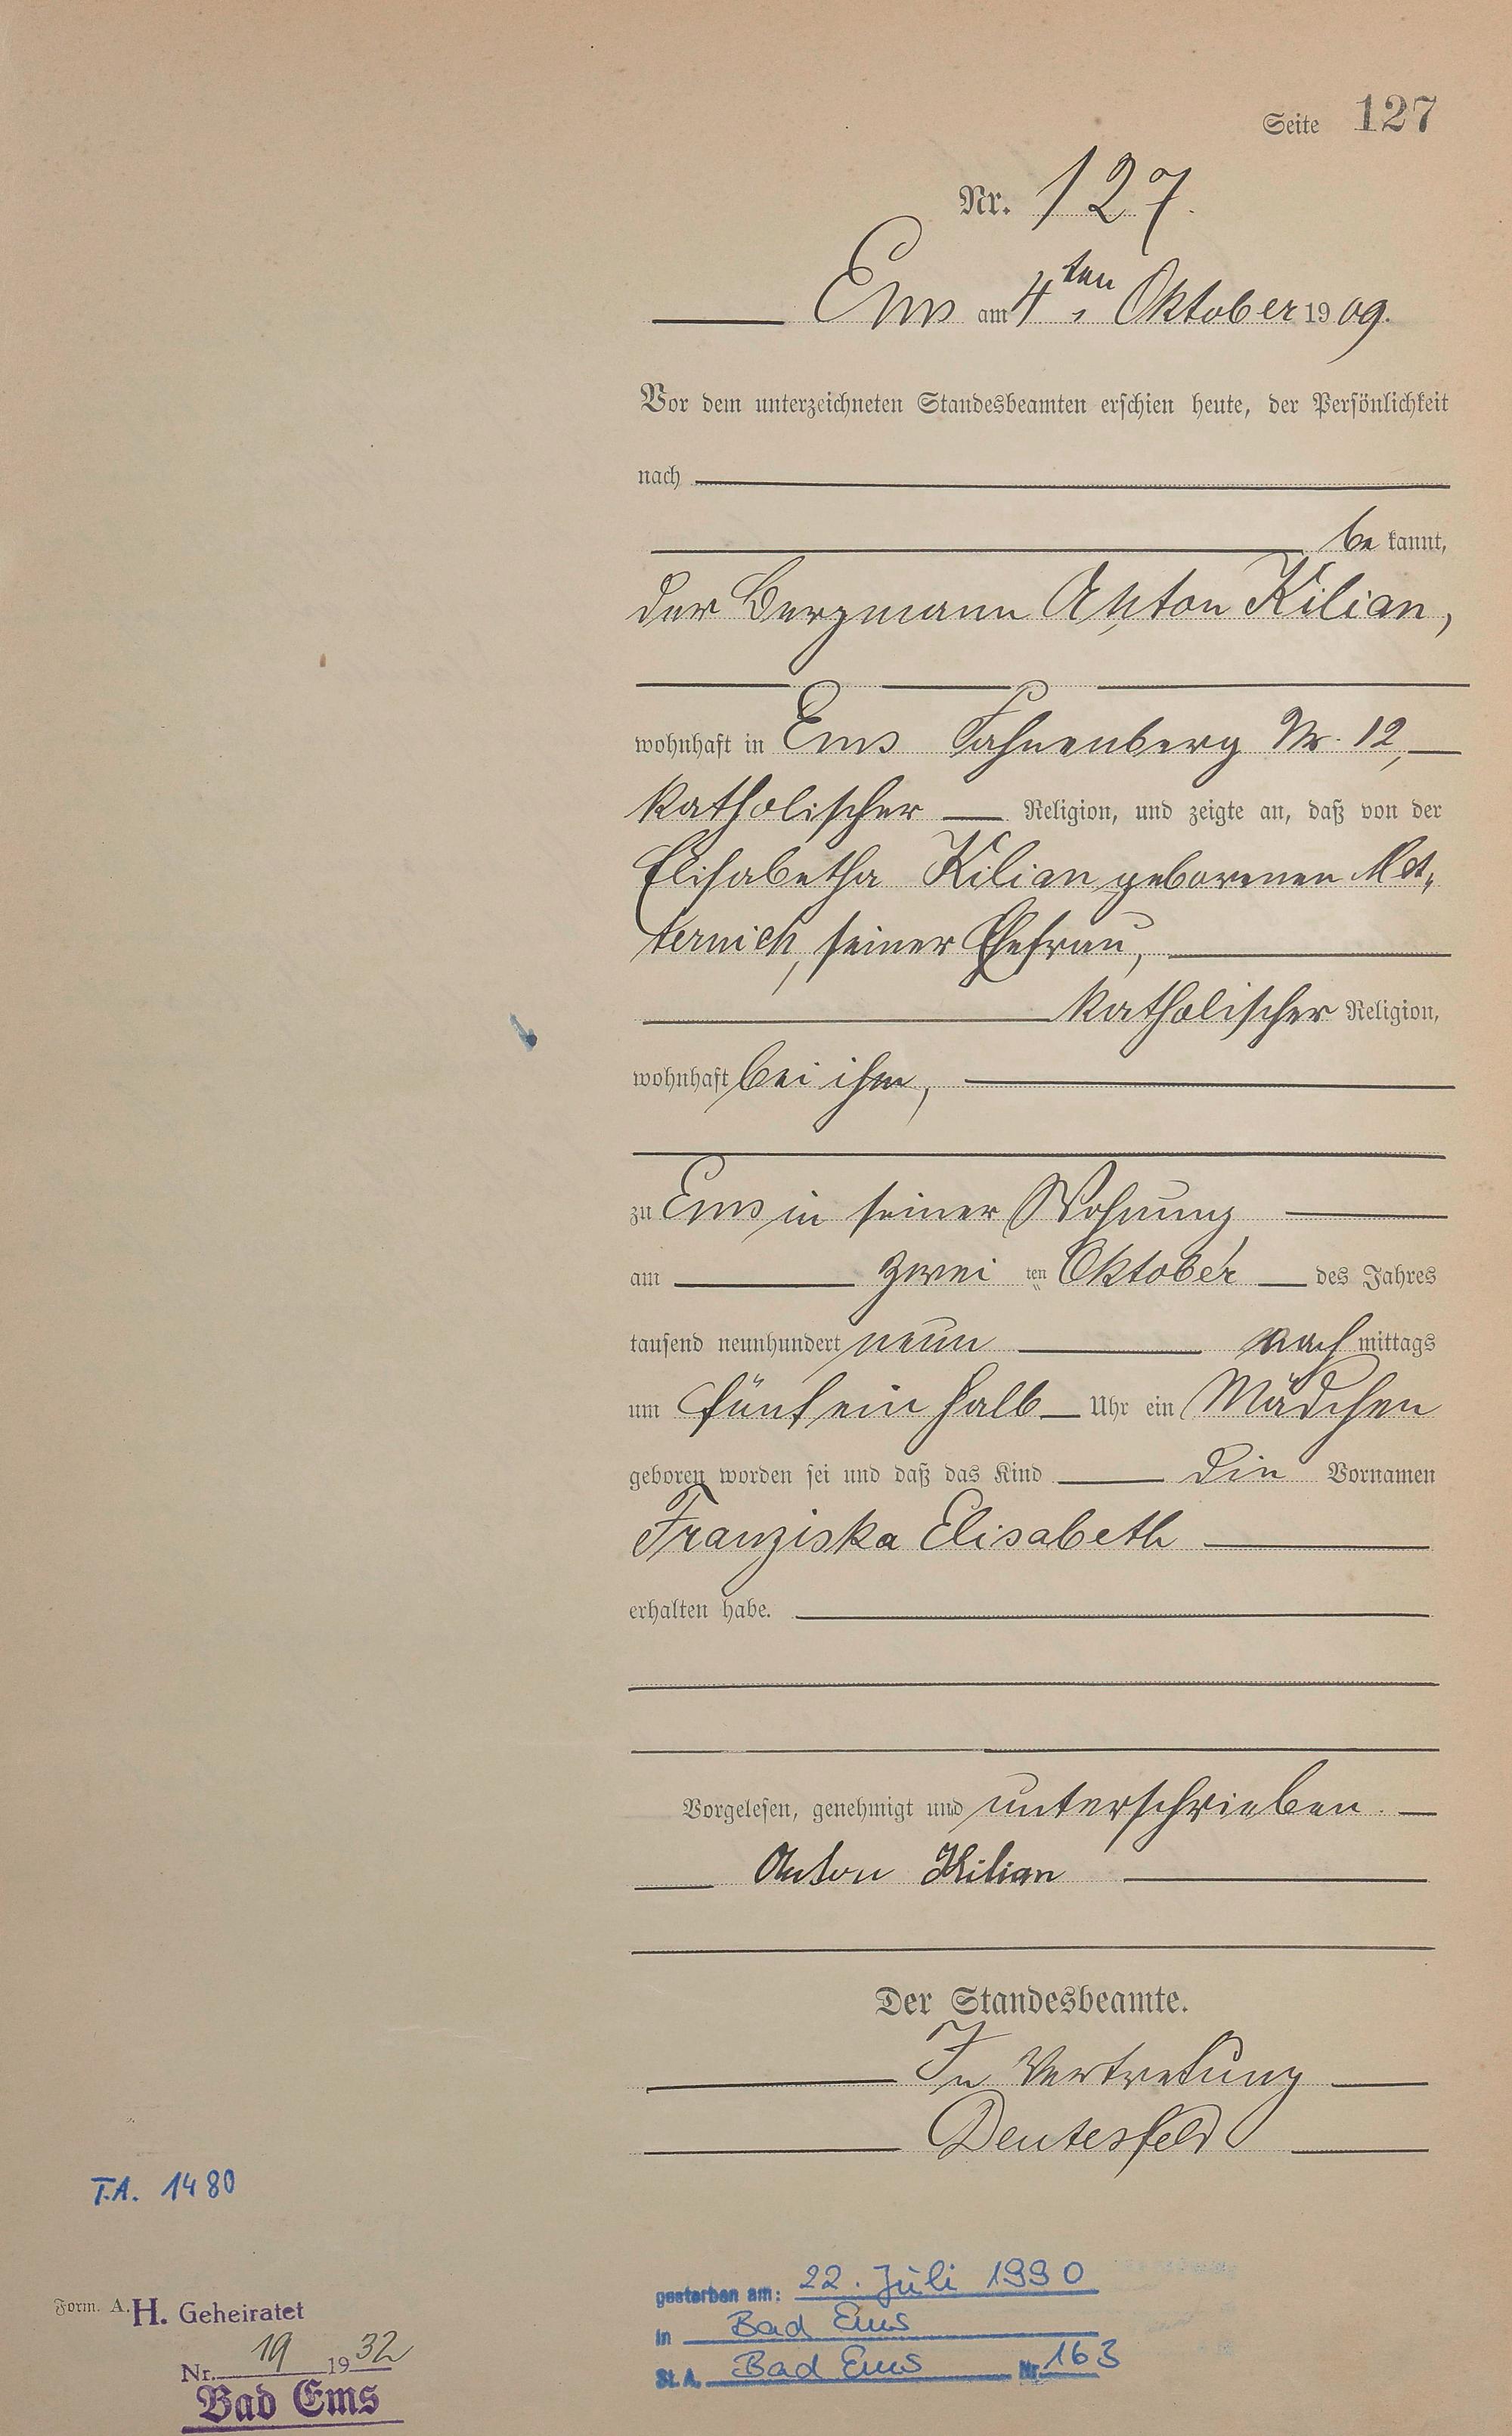 Seite 127
Nr. 127.
Ems am 4ten Oktober 1909.
Vor dem unterzeichneten Standesbeamten erschien heute, der Persönlichkeit
nach
be kannt,
der Bergmann Anton Kilian,
wohnhaft in Ems Fahnenberg Nr. 12,
katholischer Religion, und zeigte an, daß von der
Elisabetha Kilian geborenen Met„
ternich, seiner Ehefrau,
katholischer Religion,
wohnhaft bei ihm,
zu Ems in seiner Wohnung
am zwei ten Oktober des Jahres
tausend neunhundert neun nach mittags
um fünf ein halb Uhr ein Mädchen
geboren worden sei und daß das Kind die Vornamen
Franziska Elisabeth
erhalten habe.
Vorgelesen, genehmigt und unterschrieben.
Anton Kilian
Der Standesbeamte.
In Vertretung
Deutesfeld
T.A. 1480
Form. A.
H. Geheiratet
Nr. 19 1932
Bad Ems
gestorben am: 22. Juli 1990
in Bad Ems
St. A. Bad Ems Nr. 163